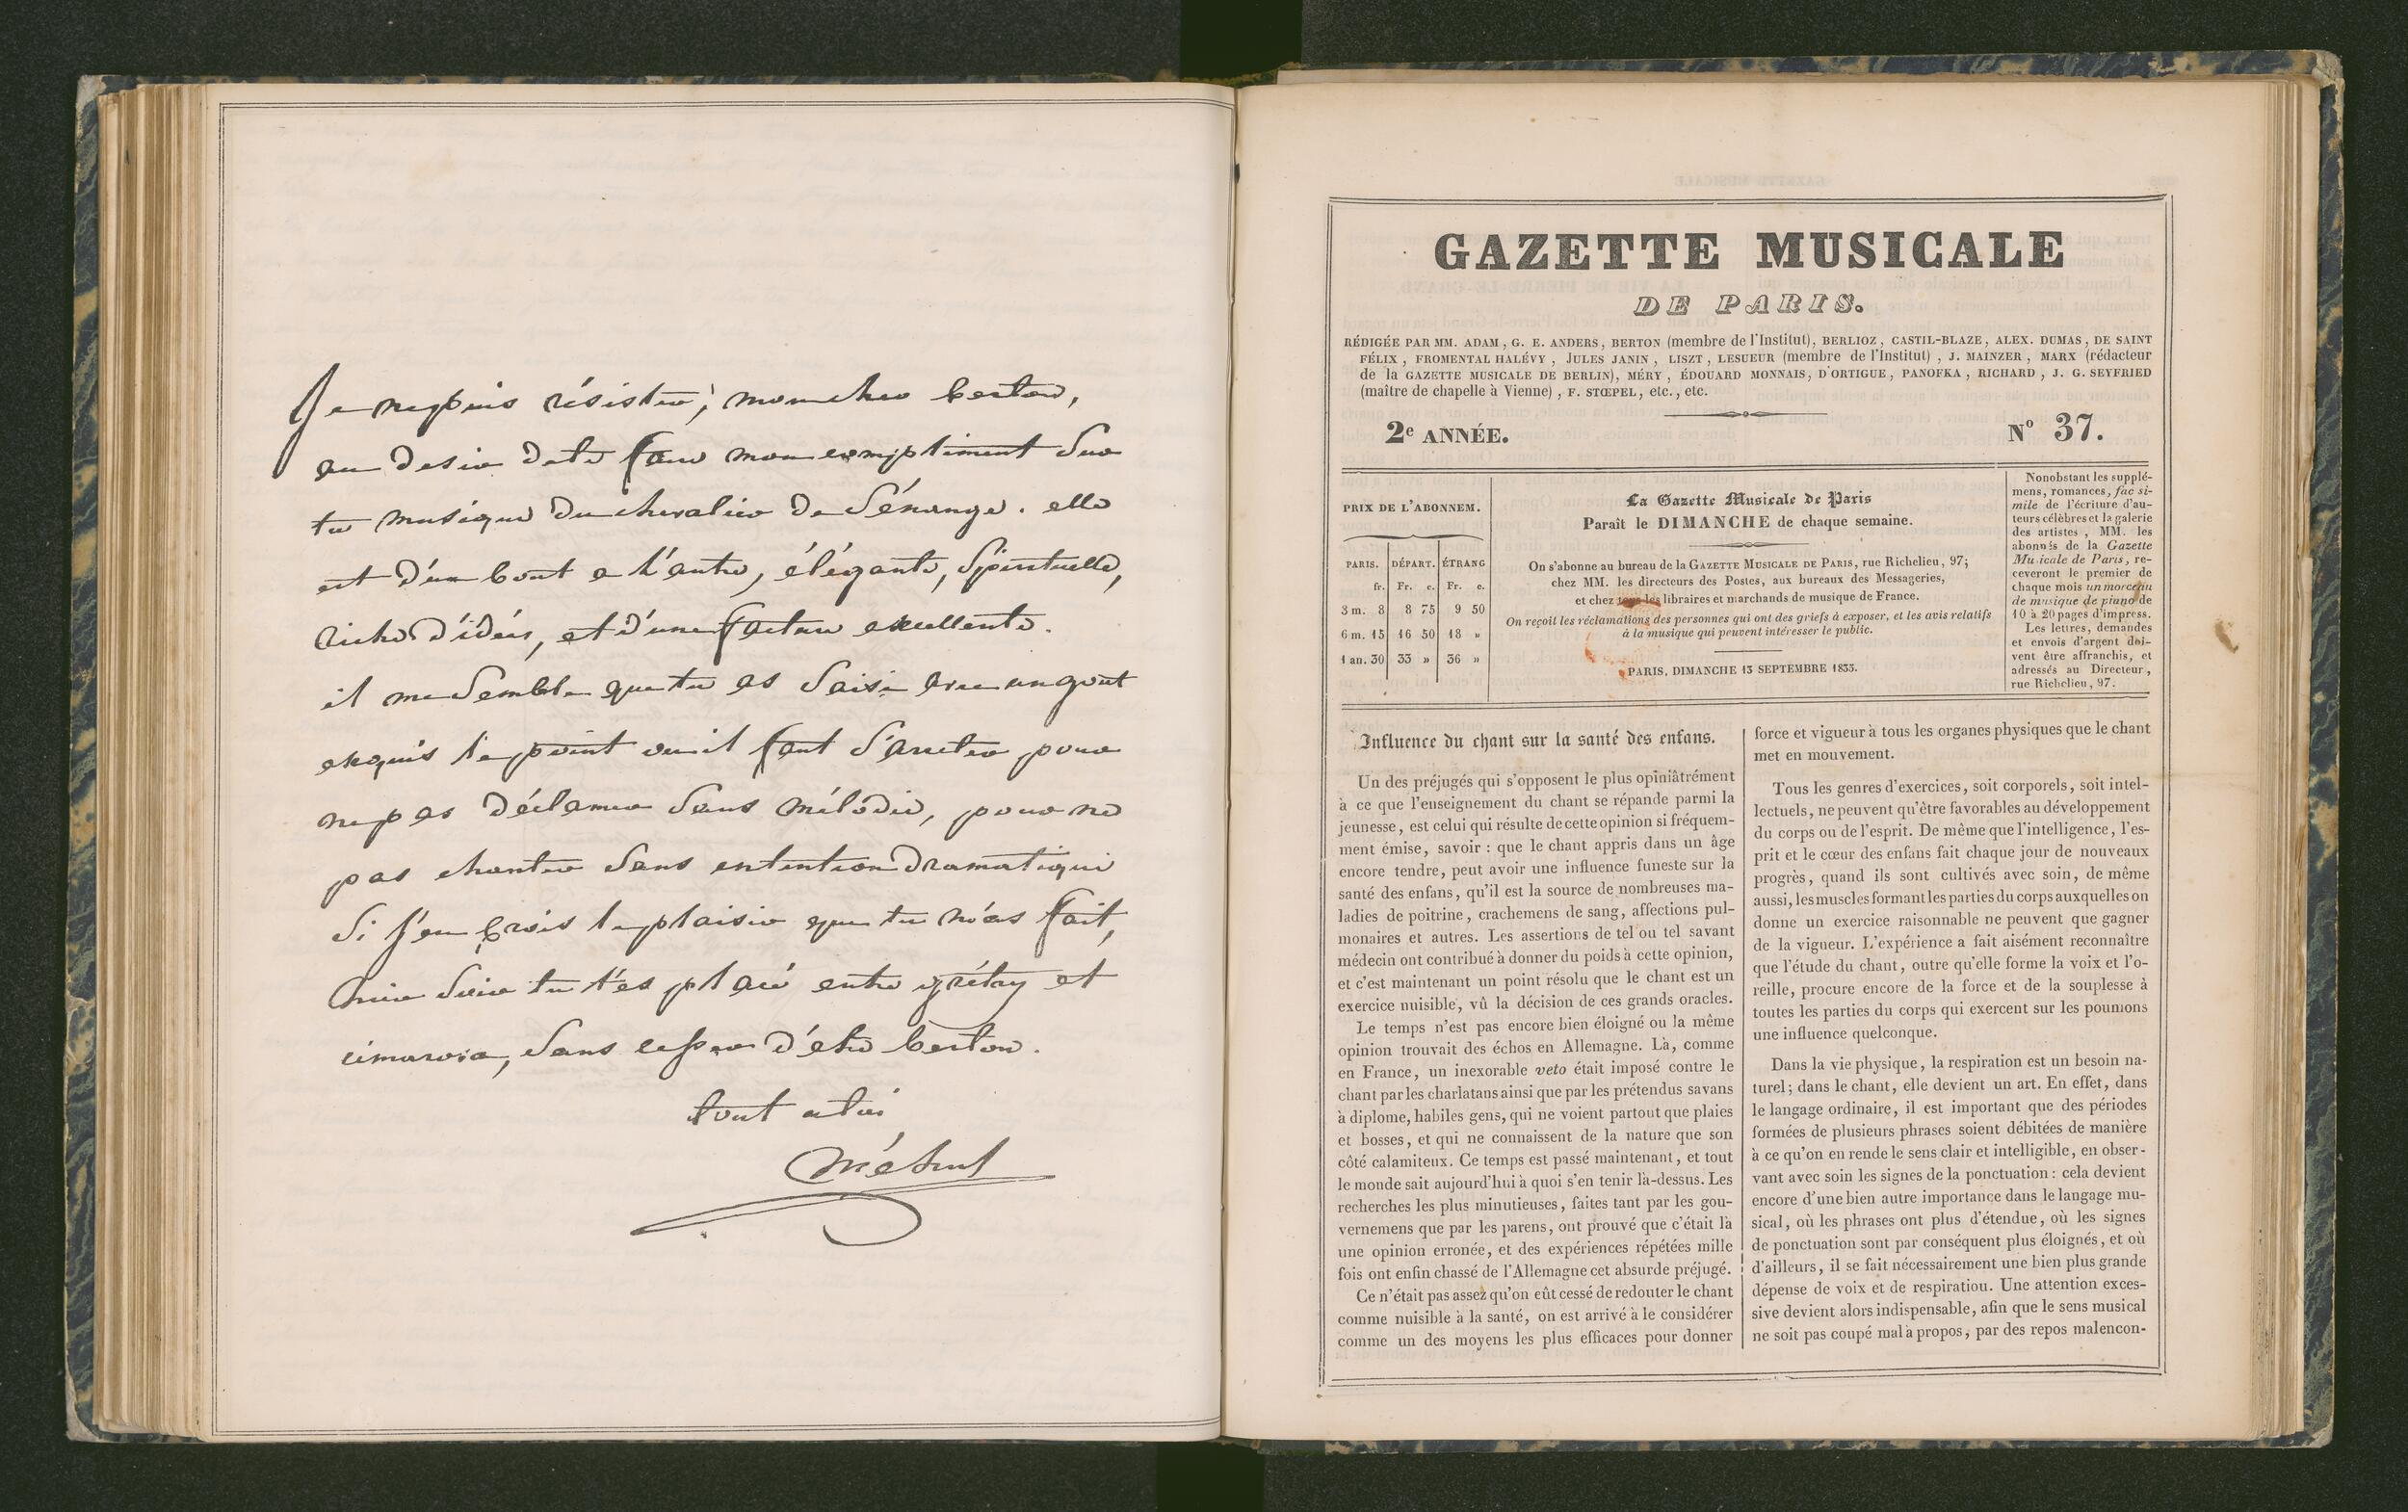 Je ne puis résister, mon cher berton,
au desir de te faire mon compliment sur
ta musique du chevalier de Sénange. elle
est d'un bout a l'autre, élégante, Spirituelle,
riche d'idées, et d'une facture excellente.
il me Semble que tu as saisi avec un gout
exquis le point ou il faut s'arreter pour
ne pas déclamer sans mélodie, pour ne
pas chanter sans intention dramatique
Si j'en crois le plaisir que tu m'as fait,
hier soir tu t'es placé entre grétry et
cimarosa, sans cesser d'etre berton.
tout a toi
Méhul
GAZETTE MUSICALE
DE PARIS.
RÉDIGÉE PAR MM. ADAM, G. E. ANDERS, BERTON (membre de l'Institut), BERLIOZ, CASTIL-BLAZE, ALEX. DUMAS, DE SAINT
FÉLIX, FROMENTAL HALÉVY, JULES JANIN, LISZT, LESUEUR (membre de l'Institut), J. MAINZER, MARX (rédacteur
de la GAZETTE MUSICALE DE BERLIN), MÉRY, ÉDOUARD MONNAIS, D'ORTIGUE, PANOFKA, RICHARD, J. G. SEYFRIED
(maître de chapelle à Vienne), F. STŒPEL, etc., etc.
2e ANNÉE.
No 37.
PRIX DE L'ABONNEM.
PARIS. DÉPART. ÉTRANG
fr. Fr. c. Fr. c.
3 m. 8 8 75 9 50
6 m. 15 16 50 18 »
1 an. 30 33 » 36 »
La Gazette Musicale de Paris
Paraît le DIMANCHE de chaque semaine.
On s'abonne au bureau de la GAZETTE MUSICALE DE PARIS, rue Richelieu, 97;
chez MM. les directeurs des Postes, aux bureaux des Messageries,
et chez tous les libraires et marchands de musique de France.
On reçoit les réclamations des personnes qui ont des griefs à exposer, et les avis relatifs
à la musique qui peuvent intéresser le public.
PARIS, DIMANCHE 13 SEPTEMBRE 1835.
Nonobstant les supplé-
mens, romances, fac si-
mile de l'écriture d'au-
teurs célèbres et la galerie
des artistes, MM. les
abonnés de la Gazette
Musicale de Paris, re-
ceveront le premier de
chaque mois un morceau
de musique de piano de
10 à 20 pages d'impress.
Les lettres, demandes
et envois d'argent doi-
vent être affranchis, et
adressés au Directeur,
rue Richelieu, 97.
Influence du chant sur la santé des enfans.
Un des préjugés qui s'opposent le plus opiniâtrément
à ce que l'enseignement du chant se répande parmi la
jeunesse, est celui qui résulte de cette opinion si fréquem-
ment émise, savoir : que le chant appris dans un âge
encore tendre, peut avoir une influence funeste sur la
santé des enfans, qu'il est la source de nombreuses ma-
ladies de poitrine, crachemens de sang, affections pul-
monaires et autres. Les assertions de tel ou tel savant
médecin ont contribué à donner du poids à cette opinion,
et c'est maintenant un point résolu que le chant est un
exercice nuisible, vû la décision de ces grands oracles.
Le temps n'est pas encore bien éloigné ou la même
opinion trouvait des échos en Allemagne. Là, comme
en France, un inexorable veto était imposé contre le
chant par les charlatans ainsi que par les prétendus savans
à diplome, habiles gens, qui ne voient partout que plaies
et bosses, et qui ne connaissent de la nature que son
côté calamiteux. Ce temps est passé maintenant, et tout
le monde sait aujourd'hui à quoi s'en tenir là-dessus. Les
recherches les plus minutieuses, faites tant par les gou-
vernemens que par les parens, ont prouvé que c'était là
une opinion erronée, et des expériences répétées mille
fois ont enfin chassé de l'Allemagne cet absurde préjugé.
Ce n'était pas assez qu'on eût cessé de redouter le chant
comme nuisible à la santé, on est arrivé à le considérer
comme un des moyens les plus efficaces pour donner
force et vigueur à tous les organes physiques que le chant
met en mouvement.
Tous les genres d'exercices, soit corporels, soit intel-
lectuels, ne peuvent qu'être favorables au développement
du corps ou de l'esprit. De même que l'intelligence, l'es-
prit et le cœur des enfans fait chaque jour de nouveaux
progrès, quand ils sont cultivés avec soin, de même
aussi, les muscles formant les parties du corps auxquelles on
donne un exercice raisonnable ne peuvent que gagner
de la vigueur. L'expérience a fait aisément reconnaître
que l'étude du chant, outre qu'elle forme la voix et l'o-
reille, procure encore de la force et de la souplesse à
toutes les parties du corps qui exercent sur les poumons
une influence quelconque.
Dans la vie physique, la respiration est un besoin na-
turel; dans le chant, elle devient un art. En effet, dans
le langage ordinaire, il est important que des périodes
formées de plusieurs phrases soient débitées de manière
à ce qu'on en rende le sens clair et intelligible, en obser-
vant avec soin les signes de la ponctuation : cela devient
encore d'une bien autre importance dans le langage mu-
sical, où les phrases ont plus d'étendue, où les signes
de ponctuation sont par conséquent plus éloignés, et où
d'ailleurs, il se fait nécessairement une bien plus grande
dépense de voix et de respiratiou. Une attention exces-
sive devient alors indispensable, afin que le sens musical
ne soit pas coupé mal à propos, par des repos malencon-